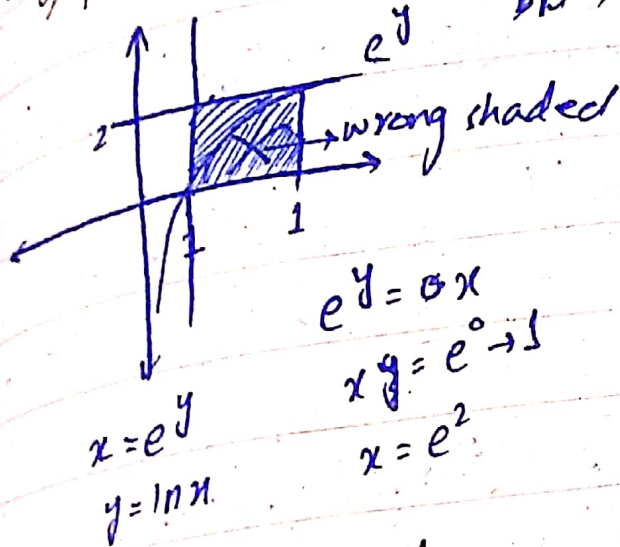 e^y
2
wrong shaded
1
1
e^y = x
x y = e^0 → 1
x = e^y
x = e^2
y = ln x